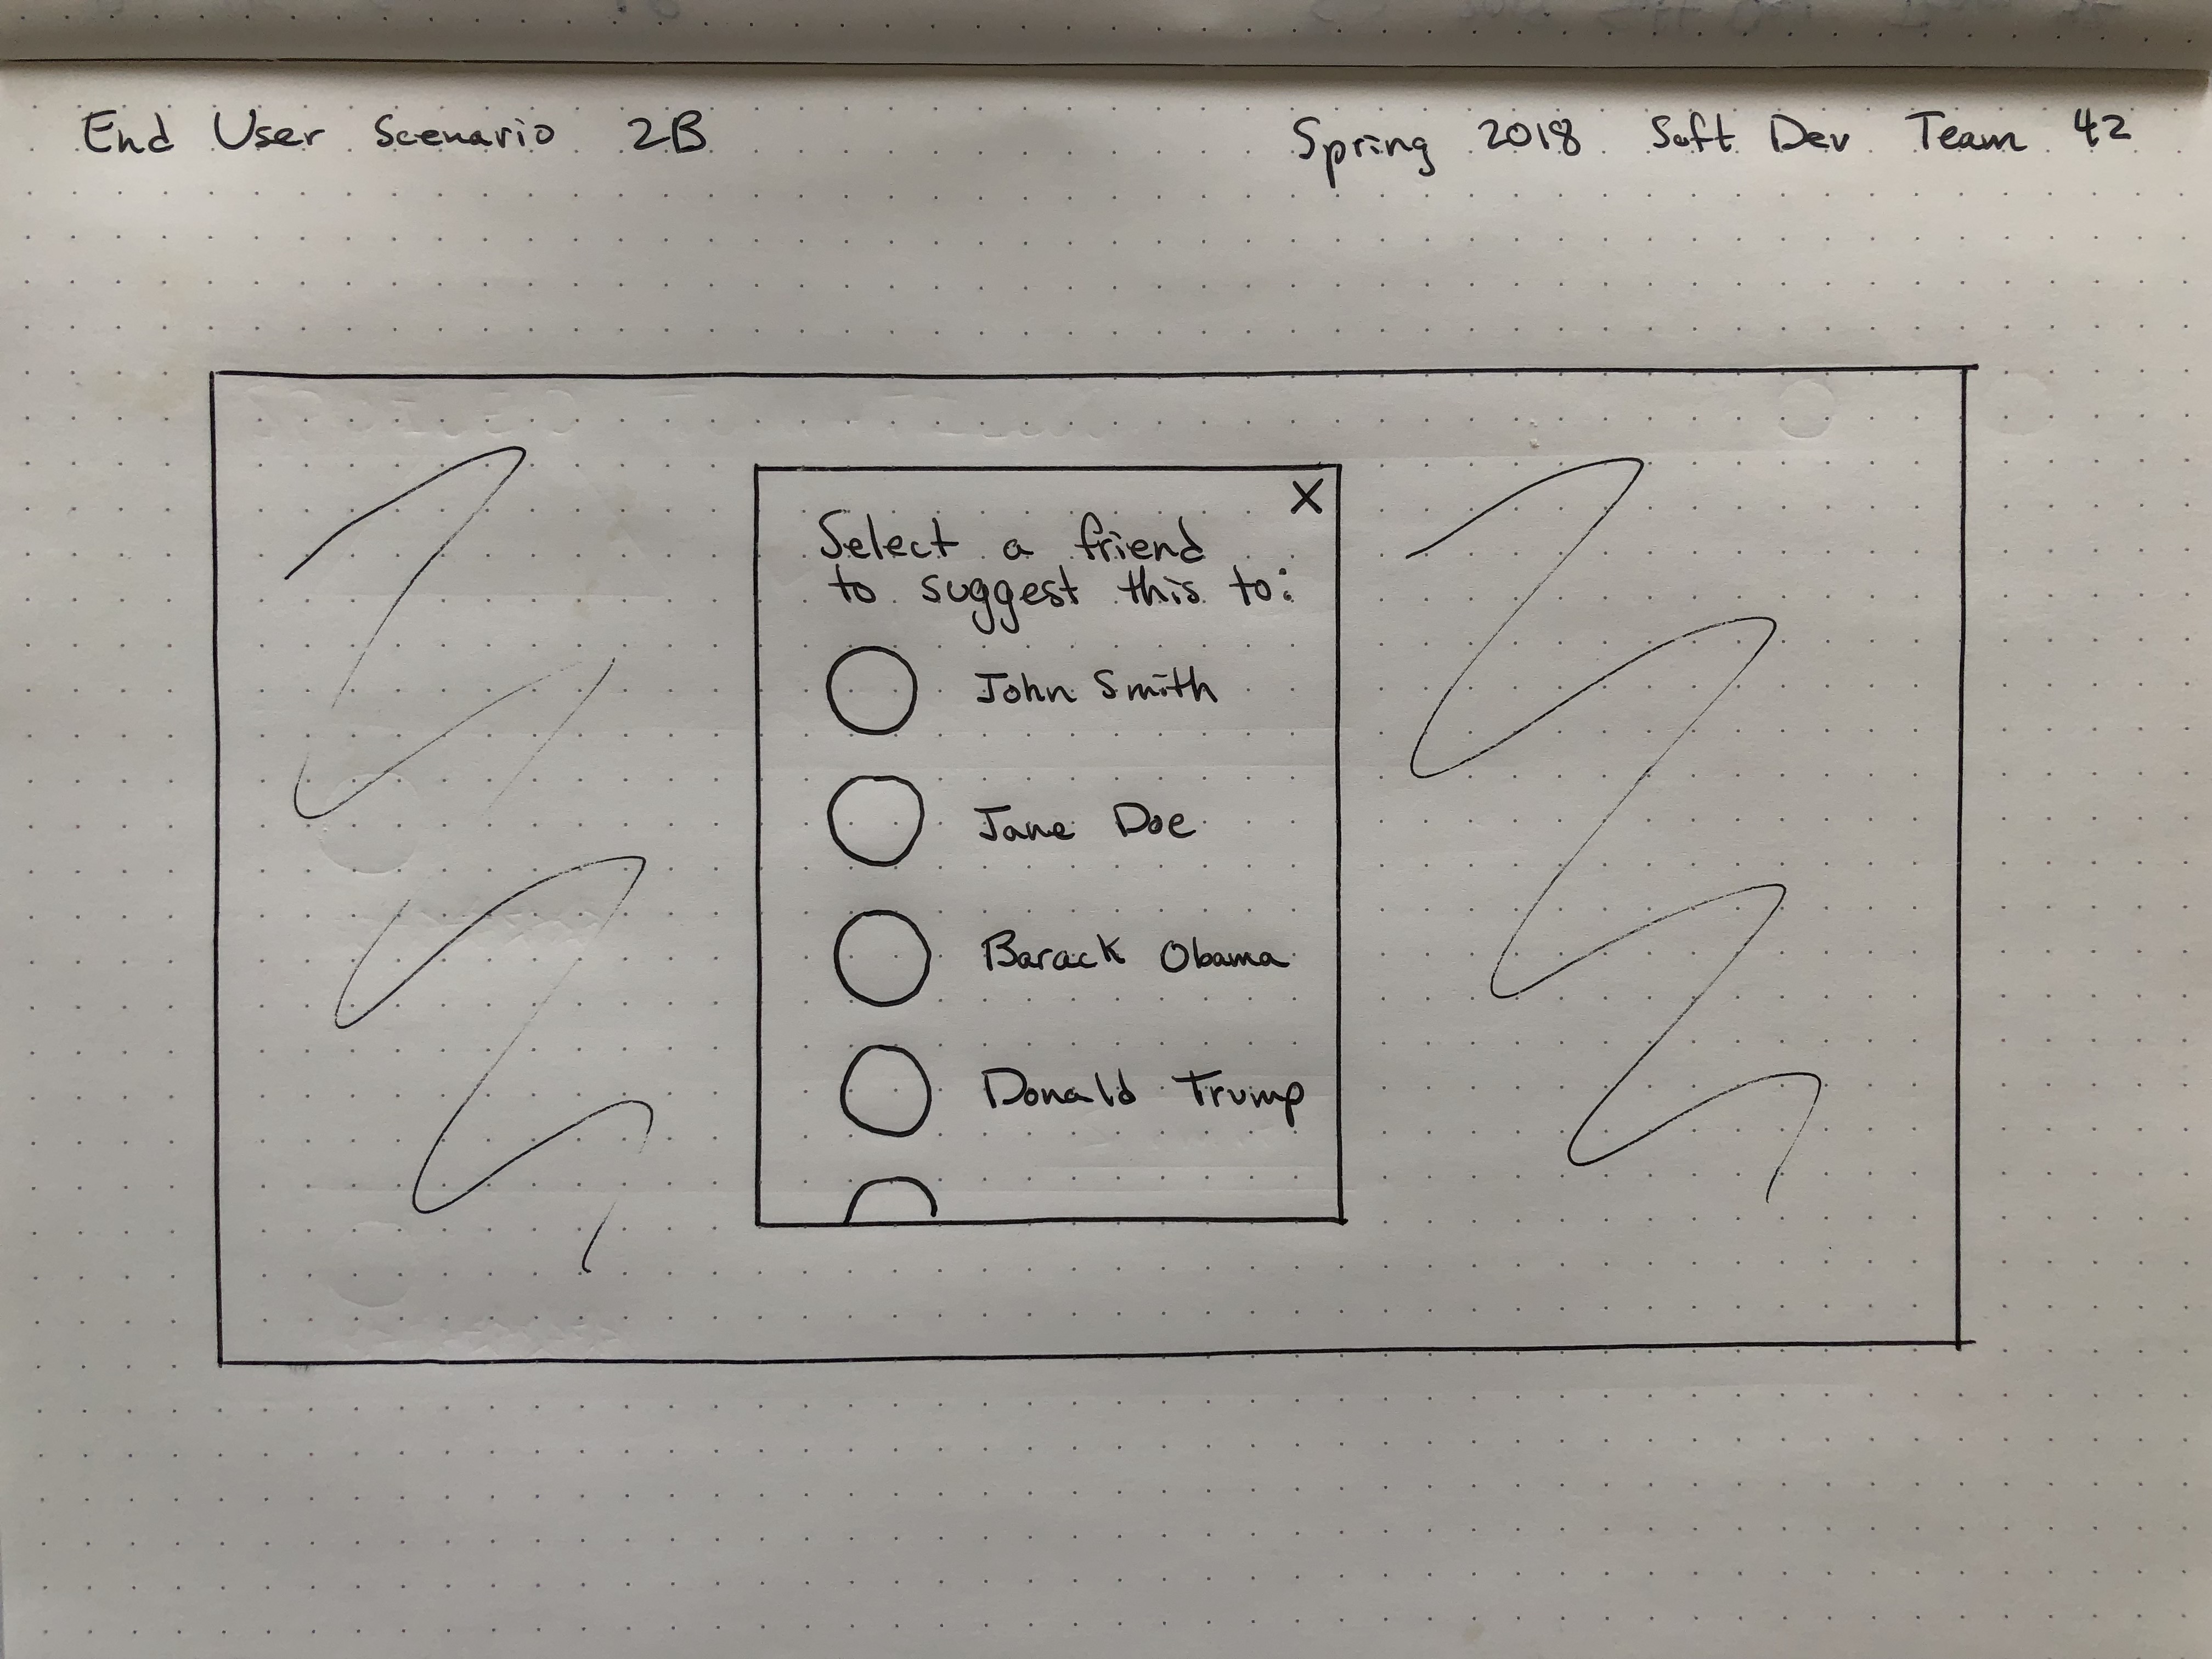 End User Scenario 2B
Spring 2018 Soft Dev Team 42
X
Select a friend
to suggest this to:
John Smith
Jane Doe
Barack Obama
Donald Trump